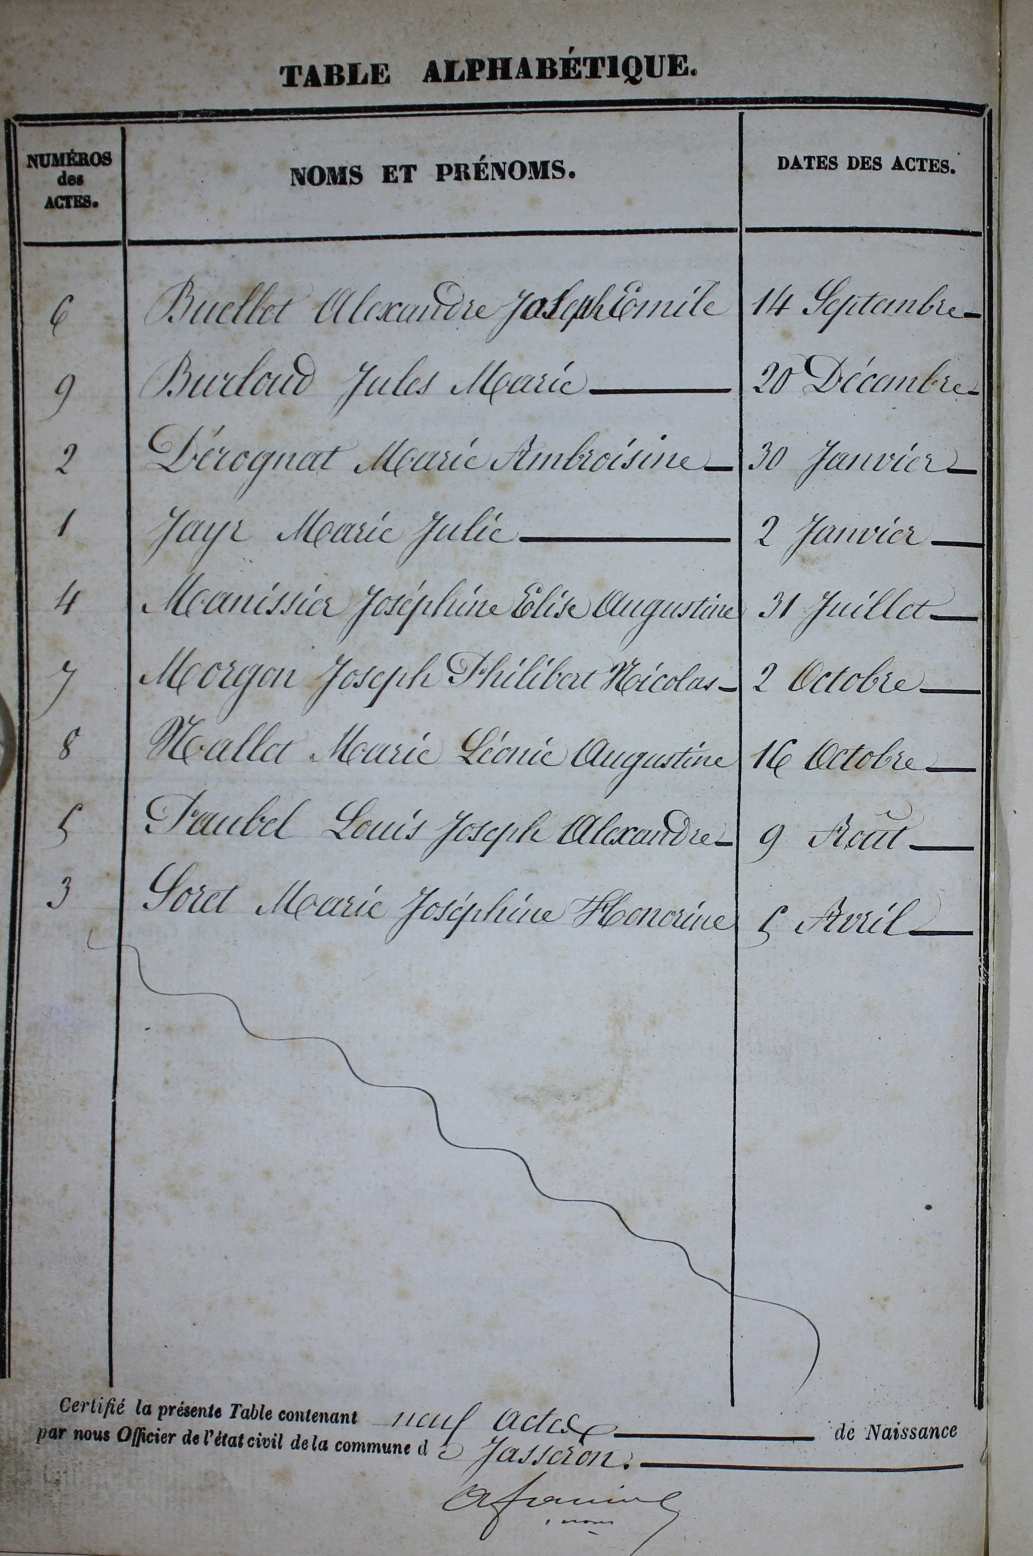 TABLE ALPHABÉTIQUE.
NUMÉROS des ACTES. NOMS ET PRÉNOMS. DATES DES ACTES.
6 Buellet Alexandre Joseph Emile 14 Septembre
9 Burloud Jules Marie 20 Décembre
2 Dérognat Marie Ambroisine 30 Janvier
1 Jayr Marie Julie 2 Janvier
4 Manissier Joséphine Elise Augustine 31 Juillet
7 Morgon Joseph Philibert Nicolas 2 Octobre
8 Nallet Marie Léonie Augustine 16 Octobre
5 Paubel Louis Joseph Alexandre 9 Août
3 Soret Marie Joséphine Honorine 5 Avril
Certifié la présente Table contenant neuf actes de Naissance
par nous Officier de l'état civil de la commune de Jasseron.